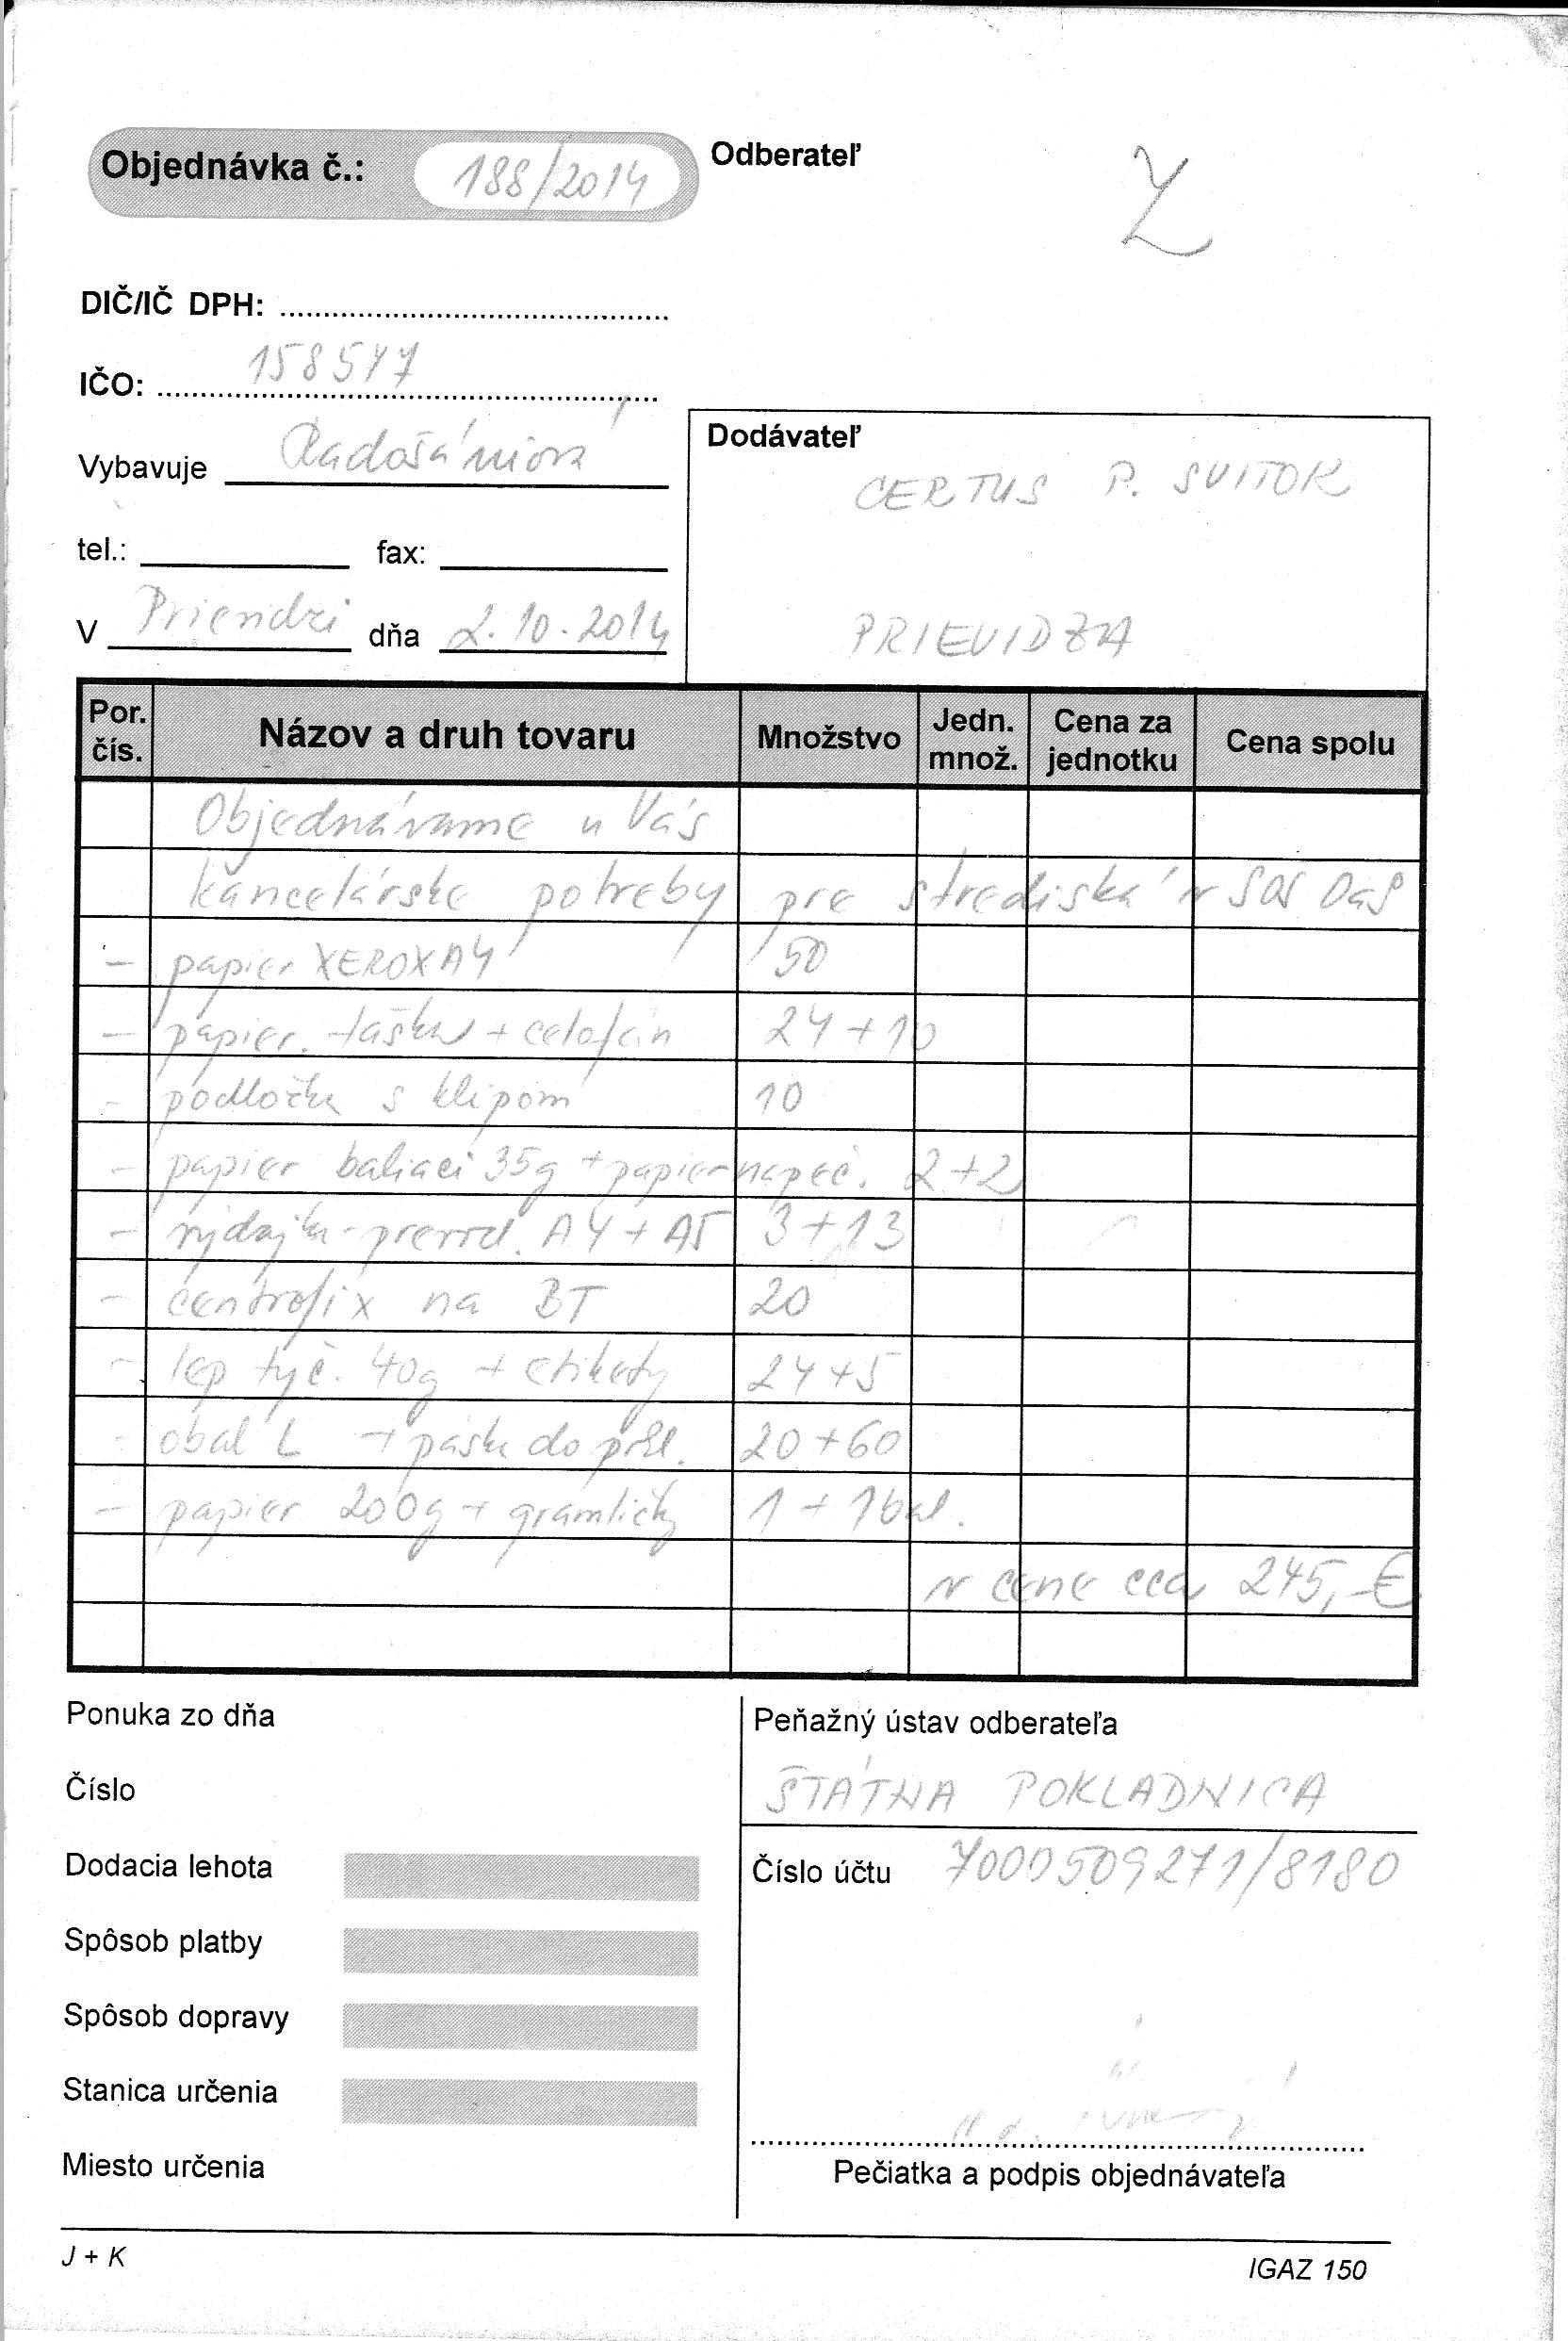 Objednávka č.: 188/2014
Odberateľ
DIČ/IČ DPH:
IČO: 158547
Vybavuje
tel.: fax:
V Prievidzi dňa 2.10.2014
Dodávateľ
CERTUS P. SVITOK
PRIEVIDZA
Por. čís. Názov a druh tovaru Množstvo Jedn. množ. Cena za jednotku Cena spolu
Objednávame u Vás
kancelárske potreby pre strediská v SOŠ OaS
- papier XEROX A4 50
- papier. taška + celofán 24 + 10
- podložka s klipom 10
- papier baliaci 35g + papier na peč. 2+2
- výdajka - prevod. A4 + A5 3 + 13
- centrofix na BT 20
- lep tyč. 40g + etikety 24+5
- obal L + páska do pokl. 20+60
- papier 200g + gramličky 1 + 1 bal.
v cene cca 245,-€
Ponuka zo dňa
Číslo
Dodacia lehota
Spôsob platby
Spôsob dopravy
Stanica určenia
Miesto určenia
Peňažný ústav odberateľa
ŠTÁTNA POKLADNICA
Číslo účtu 7000509271/8180
Pečiatka a podpis objednávateľa
J + K
IGAZ 150